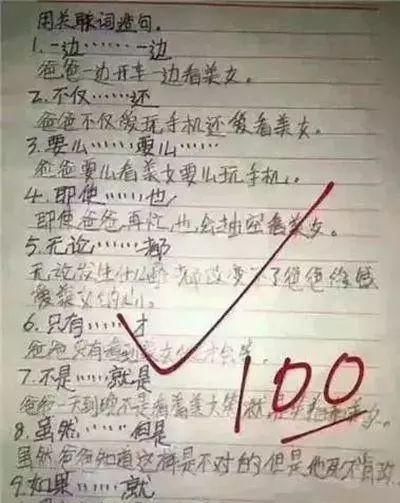 用关联词造句.
1.一边……一边
爸爸一边开车一边看美女。
2.不仅……还
爸爸不仅爱玩手机还爱看美女。
3.要么……要么……
爸爸要么看美女要么玩手机。
4.即使……也
即使爸爸再忙,也会抽空看美女。
5.无论……都
无论发生什么 都改变不了爸爸 爱美女的心。
6.只有……才
爸爸只有看到美女 才会笑。
7.不是……就是
爸爸一天到晚不是看着美女笑就是
8.虽然……但是
虽然爸爸知道这样是不对的但是他
9.如果……就
100